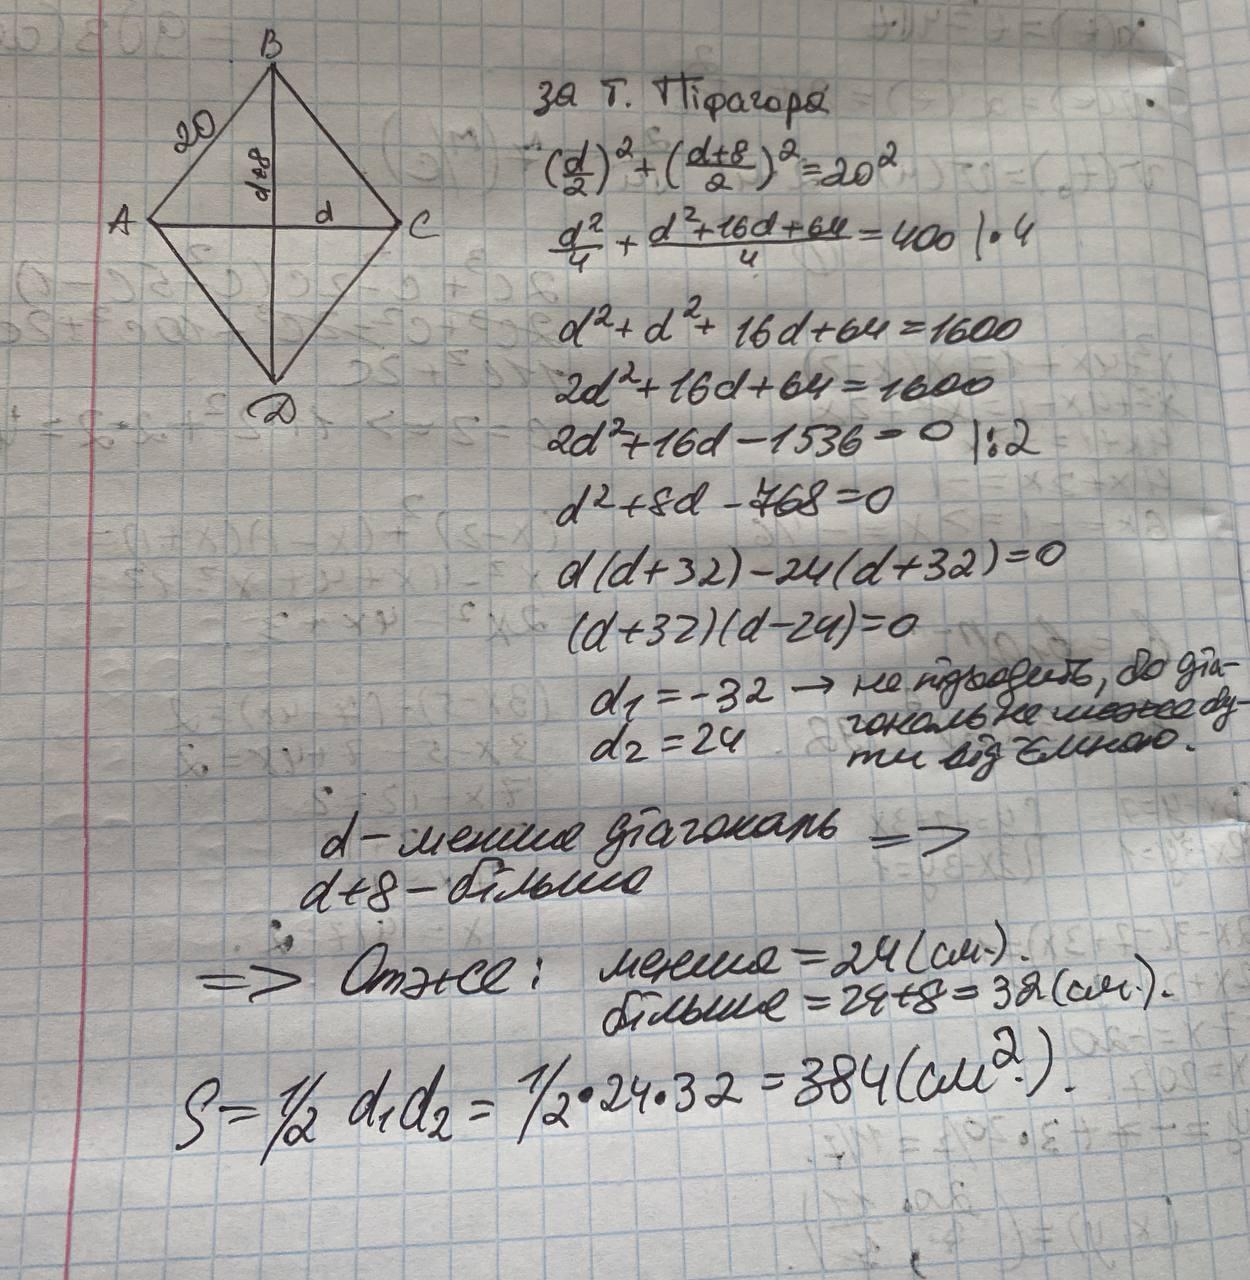 B
20
d+8
A
d
C
D
за Т. Піфагора
(d/2)² + (d+8/2)² = 20²
d²/4 + d²+16d+64/4 = 400 |·4
d² + d² + 16d + 64 = 1600
2d² + 16d + 64 = 1600
2d² + 16d - 1536 = 0 |:2
d² + 8d - 768 = 0
d(d+32) - 24(d+32) = 0
(d+32)(d-24) = 0
d₁ = -32 → не підходить, бо діа-
гональ не може бу-
d₂ = 24
ти від'ємною.
d - менша діагональ =>
d+8 - більша
=> Отже: менша = 24 (см.).
більша = 24+8 = 32 (см.).
S = 1/2 d₁d₂ = 1/2·24·32 = 384 (см².).